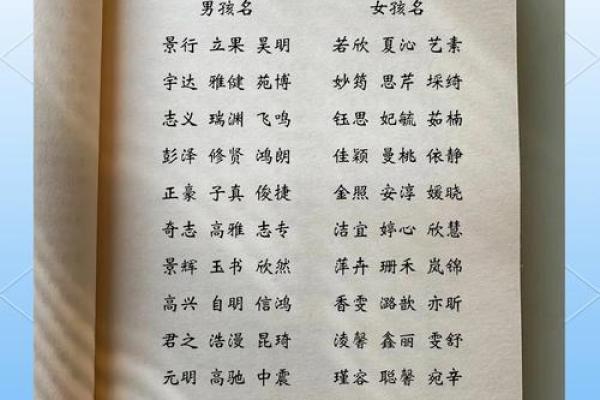 男孩名 女孩名
景行 立果 昊明 若欣 夏沁 艺素
宇达 雅健 苑博 妙筠 思芹 埰绮
志义 瑞渊 飞鸣 钰思 妃毓 茹楠
彭泽 修贤 鸿朗 佳颖 曼桃 依静
正豪 子真 俊捷 金照 安淳 媛晓
奇志 高雅 志专 洁宜 婷心 欣慧
景辉 玉书 欣然 萍卉 珊禾 岚锦
高兴 自明 信鸿 香雯 潞歆 亦昕
君之 浩漫 昆琦 淩馨 鑫丽 雯舒
元明 高驰 中震 瑾容 聪馨 宛辛